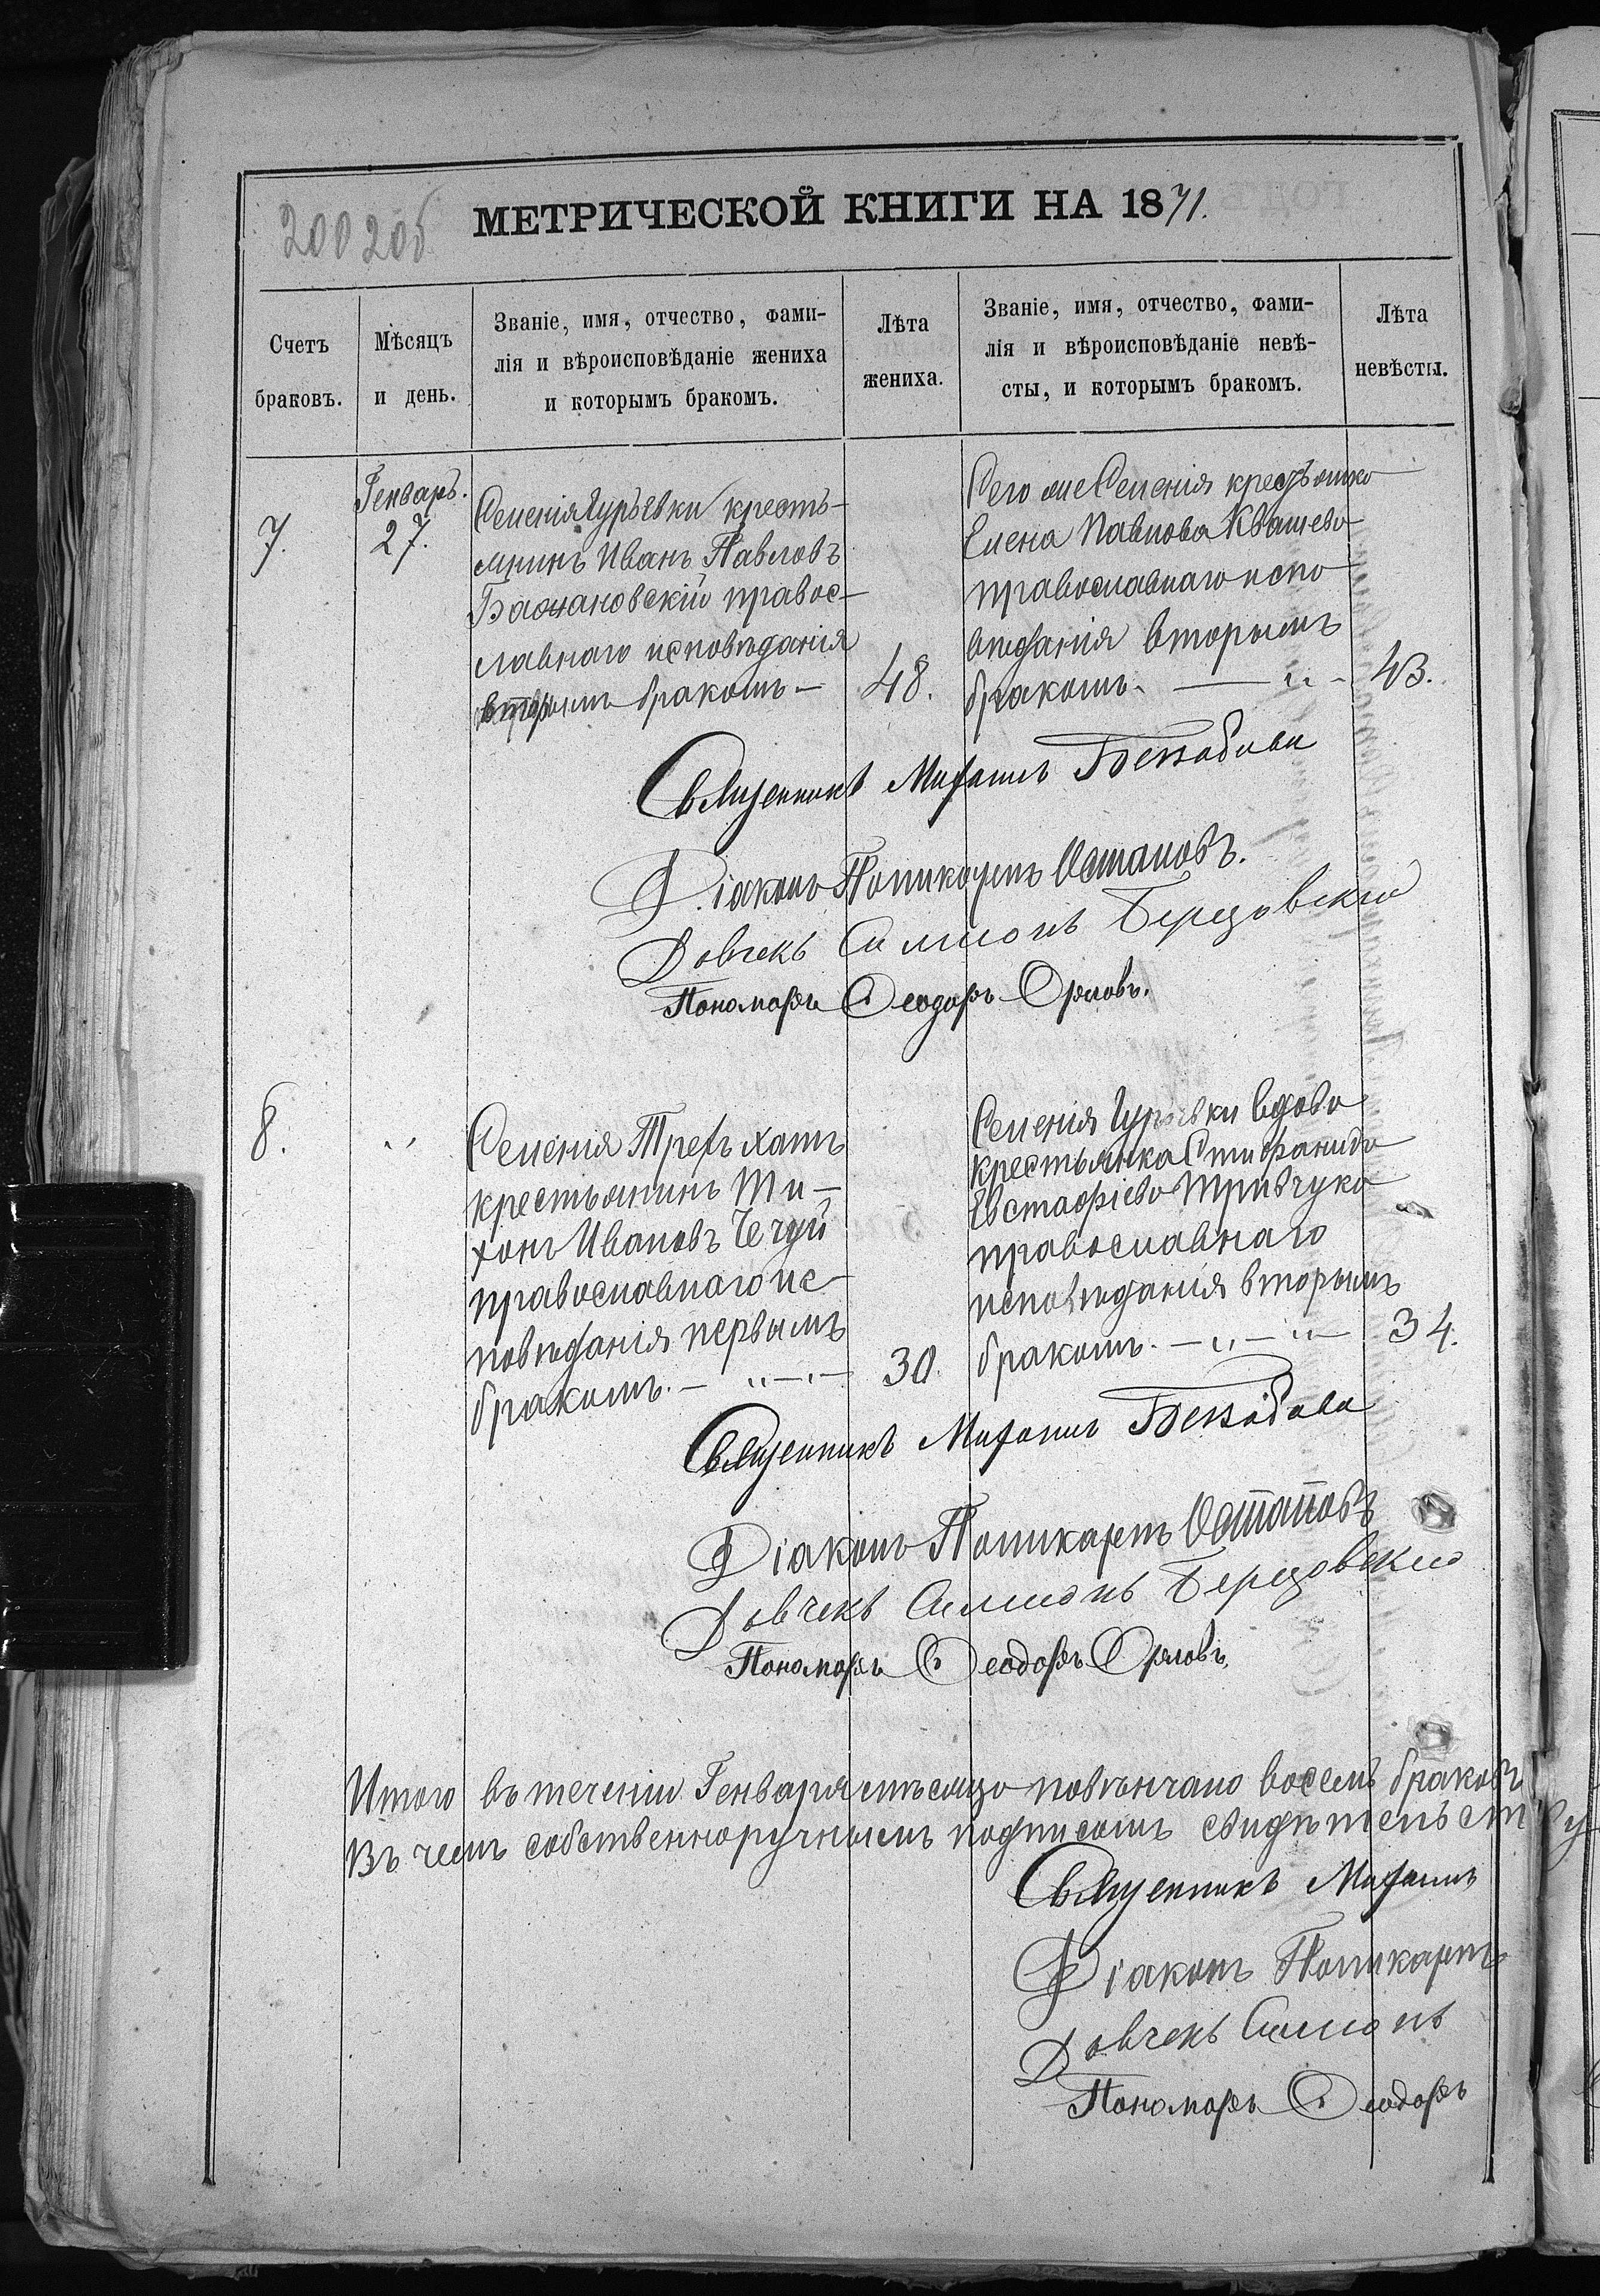 200 205
МЕТРИЧЕСКОЙ КНИГИ НА 1871.
Счетъ
браковъ.
Мѣсяцъ
и день.
Званіе, имя, отчество, фами-
лія и вѣроисповѣданіе жениха
и которымъ бракомъ.
Лѣта
жениха.
Званіе, имя, отчество, фами-
лія и вѣроисповѣданіе невѣ-
сты, и которымъ бракомъ.
Лѣта
невѣсты.
7.
Генварь.
27.
Селенія Гурьевки кресть-
янинъ Иванъ Павловъ
Бачановскій правос-
лавнаго исповѣданія
вторымъ бракомъ —
48.
Сего же Селенія крестьянка
Елена Павлова Квашева
православнаго испо-
вѣданія вторымъ
бракомъ. — „ -
43.
Священникъ Михаилъ
Діаконъ Поликарпъ Остаповъ.
Дьячекъ Симеонъ Березовскій
Пономарь Ѳеодоръ Орловъ.
8.
„
Селенія Трехъ хатъ
крестьянинъ Ти-
хонъ Ивановъ Чечуй
православнаго ис-
повѣданія первымъ
бракомъ. — „ — „ —
30.
Селенія Гурьевки вдова
крестьянка Стефанида
Евстафіева Тривчука
православнаго
исповѣданія вторымъ
бракомъ. — „ — „ —
34.
Священникъ Михаилъ
Діаконъ Поликарпъ Остаповъ
Дьячекъ Симеонъ Березовскій
Пономарь Ѳеодоръ Орловъ.
Итого въ теченіи Генваря мѣсяца повѣнчано восемь браковъ
Въ чемъ собственноручнымъ подписомъ свидѣтельству
Священникъ Михаилъ
Діаконъ Поликарпъ
Дьячекъ Симеонъ
Пономарь Ѳеодоръ